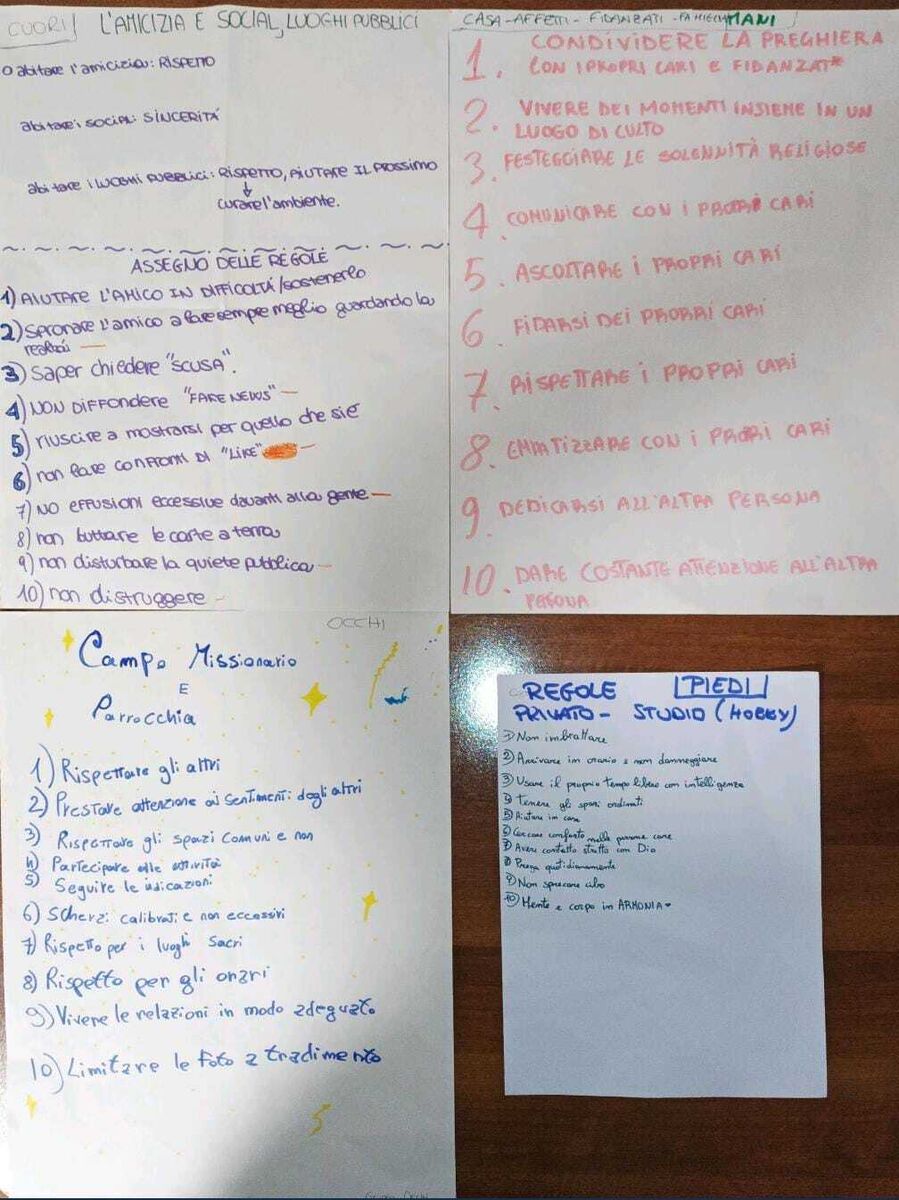 CUORI L'AMICIZIA E SOCIAL, LUOGHI PUBBLICI
o abitare l'amicizia: RISPETTO
abitare i SOCIAL: SINCERITÀ
abitare i LUOGHI PUBBLICI: RISPETTO, AIUTARE IL PROSSIMO
↓
curare l'ambiente.
ASSEGNO DELLE REGOLE
1) AIUTARE L'AMICO IN DIFFICOLTÁ/sostenerlo
2) Spronare l'amico a fare sempre meglio guardando la
realtà
3) Saper chiedere "SCUSA".
4) NON DIFFONDERE "FAKE NEWS"
5) riuscire a mostrarsi per quello che si è
6) non fare confronti di "LIKE"
7) NO EFFUSIONI ECCESSIVE davanti alla gente
8) non buttare le carte a terra
9) non disturbare la quiete pubblica
10) non distruggere
CASA - AFFETTI - FIDANZATI - FAMIGLIA MANI
1. CONDIVIDERE LA PREGHIERA
CON I PROPRI CARI E FIDANZAT*
2. VIVERE DEI MOMENTI INSIEME IN UN
LUOGO DI CULTO
3. FESTEGGIARE LE SOLENNITÀ RELIGIOSE
4. COMUNICARE CON I PROPRI CARI
5. ASCOLTARE I PROPRI CARI
6. FIDARSI DEI PROPRI CARI
7. RISPETTARE I PROPRI CARI
8. EMPATIZZARE CON I PROPRI CARI
9. DEDICARSI ALL'ALTRA PERSONA
10. DARE COSTANTE ATTENZIONE ALL'ALTRA
PERSONA
OCCHI
Campo Missionario
E
Parrocchia
1) Rispettare gli altri
2) Prestare attenzione ai sentimenti degli altri
3) Rispettare gli spazi comuni e non
4) Partecipare alle attività
5) Seguire le indicazioni
6) Scherzi calibrati e non eccessivi
7) Rispetto per i luoghi sacri
8) Rispetto per gli orari
9) Vivere le relazioni in modo adeguato
10) Limitare le foto a tradimento
REGOLE PIEDI
PRIVATO - STUDIO (HOBBY)
1) Non imbrattare
2) Arrivare in orario e non danneggiare
3) Usare il proprio tempo libero con intelligenza
4) Tenere gli spazi ordinati
5) Aiutare in casa
6) Cercare conforto nelle persone care
7) Avere contatto stretto con Dio
8) Prega quotidianamente
9) Non sprecare cibo
10) Mente e corpo in ARMONIA ♥